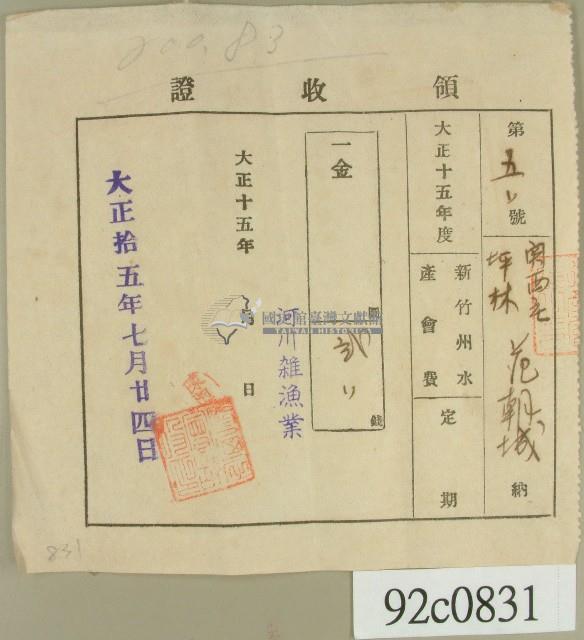 200.83
領收證
第五〃號
関西庄
坪林
范朝城
納
大正十五年度
新竹州水
產會費
定期
一金
圓
貳〃
錢
河川雜漁業
大正十五年
日
大正拾五年七月廿四日
國史館臺灣文獻館
TAIWAN HISTORICA
831
92c0831